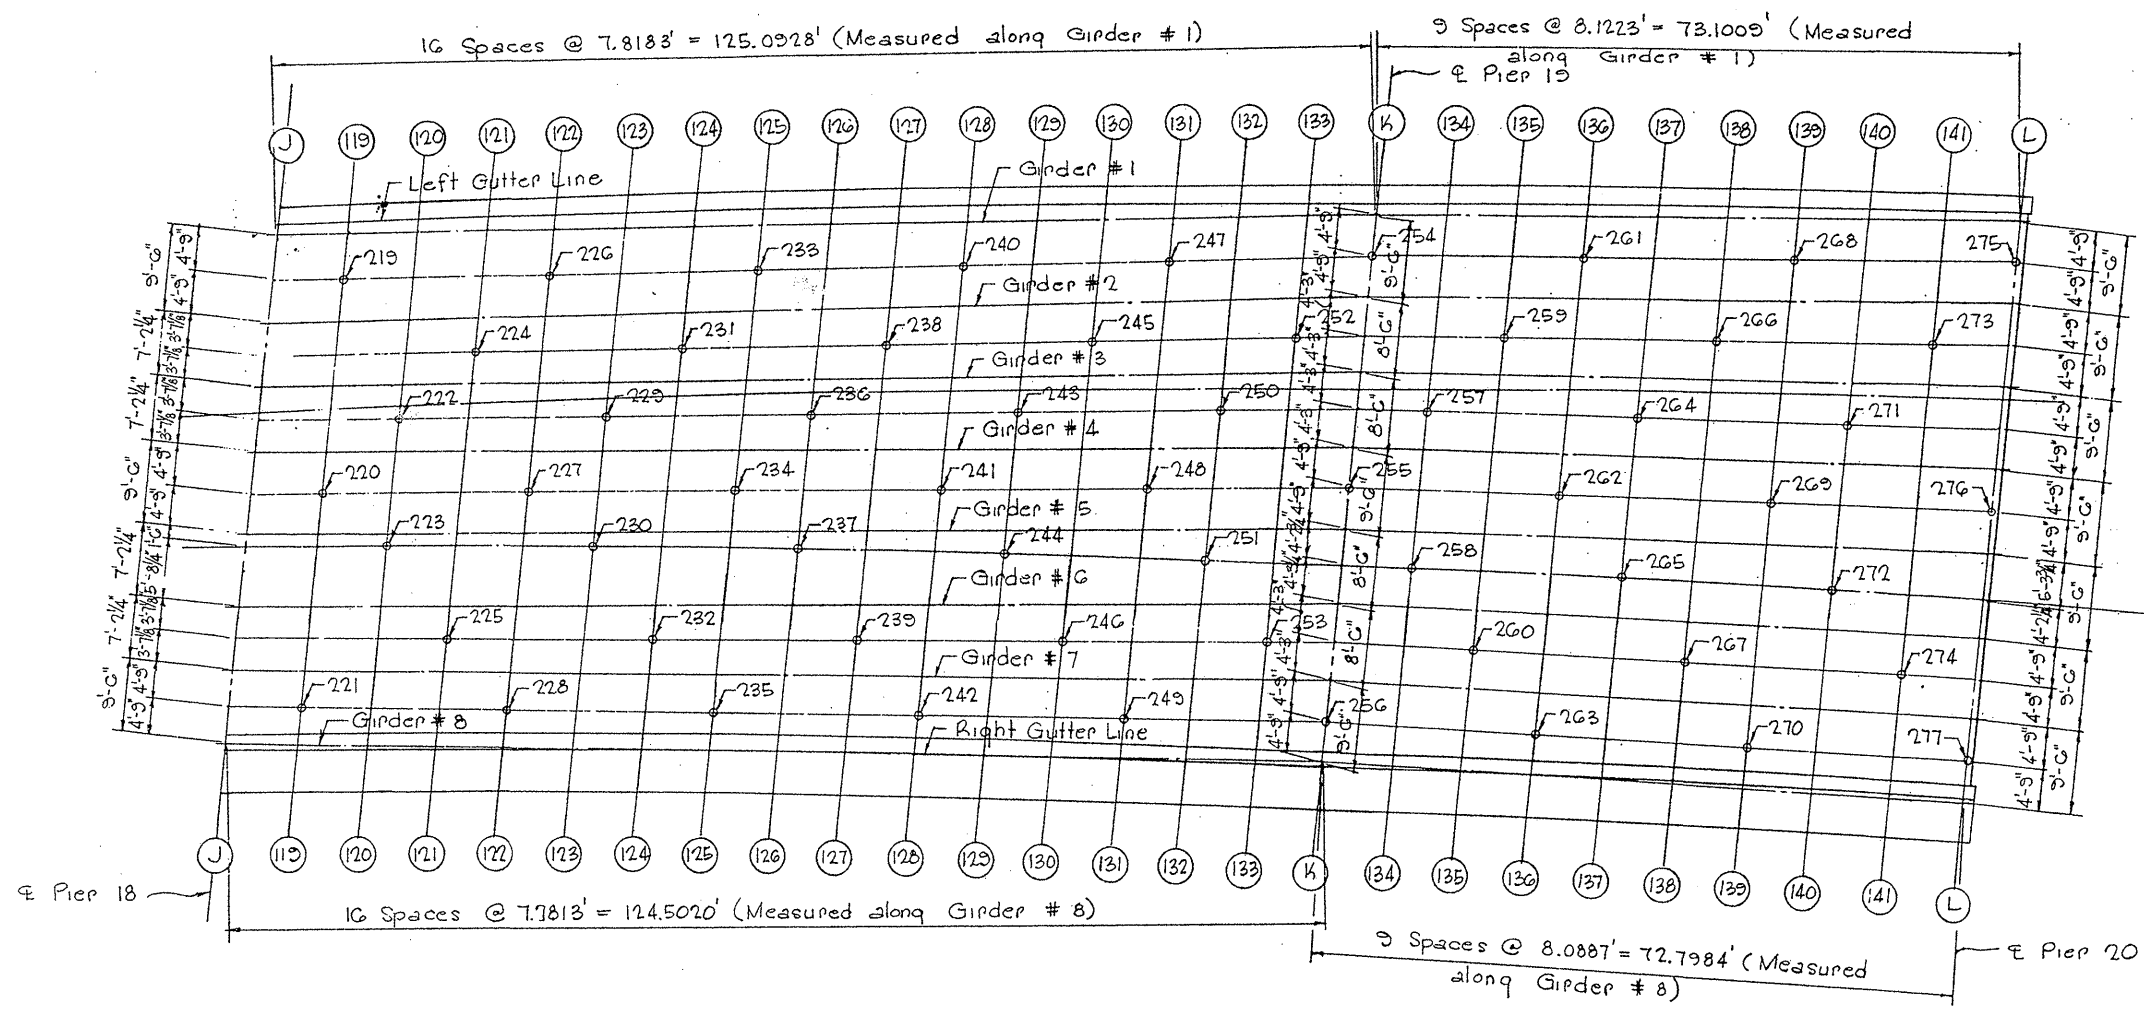 16 Spaces @ 7.8183' = 125.0928' (Measured along Girder # 1)
9 Spaces @ 8.1223' = 73.1009' (Measured
along Girder # 1)
℄ Pier 19
J 119 120 121 122 123 124 125 126 127 128 129 130 131 132 133 K 134 135 136 137 138 139 140 141 L
Left Gutter Line
Girder # 1
219 226 233 240 247 254 261 268 275
Girder # 2
224 231 238 245 252 259 266 273
Girder # 3
222 229 236 243 250 257 264 271
Girder # 4
220 227 234 241 248 255 262 269 276
Girder # 5
223 230 237 244 251 258 265 272
Girder # 6
225 232 239 246 253 260 267 274
Girder # 7
221 228 235 242 249 256 263 270 277
Girder # 8
Right Gutter Line
9'-6" 7'-2¼" 7'-2¼" 9'-6" 7'-2¼" 7'-2¼" 9'-6"
4'-9" 4'-9" 3'-7⅛" 3'-7⅛" 3'-7⅛" 3'-7⅛" 4'-9" 4'-9" 1'-6" 5'-8¼" 3'-7⅛" 3'-7⅛" 4'-9" 4'-9"
4'-9" 4'-9" 4'-3" 4'-3" 4'-3" 4'-3" 4'-9" 4'-9" 4'-3" 4'-3" 4'-9" 4'-9"
9'-6" 8'-6" 8'-6" 9'-6" 8'-6" 8'-6" 9'-6"
4'-9" 4'-9" 4'-9" 4'-9" 4'-9" 4'-9" 4'-9" 4'-9" 4'-9" 4'-9" 4'-9" 4'-9"
9'-6" 9'-6" 9'-6" 9'-6" 9'-6" 9'-6" 9'-6"
J 119 120 121 122 123 124 125 126 127 128 129 130 131 132 133 K 134 135 136 137 138 139 140 141 L
℄ Pier 18
16 Spaces @ 7.7813' = 124.5020' (Measured along Girder # 8)
9 Spaces @ 8.0887' = 72.7984' (Measured
along Girder # 8)
℄ Pier 20